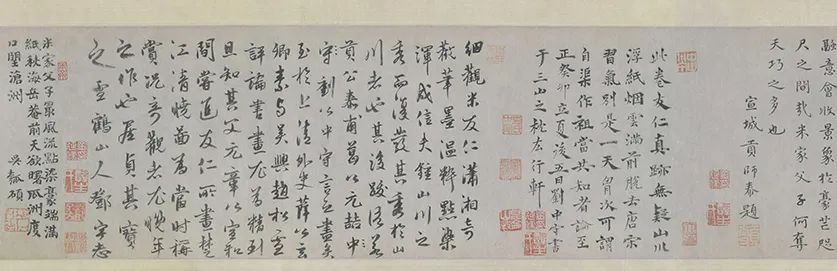 融意會收景象於豪芒咫
尺之間哉米家父子何奪
天巧之多也
宣城貢師泰題
此卷友仁真跡無疑山水
浮紙烟雲滿前脫去唐宋
習氣別是一天胷次可謂
自渠作祖當共知者論至
正癸卯立夏後五日劉中守書
于三山之玄行軒
細觀米友仁瀟湘奇
觀筆墨溫粹點染
渾成信夫鍾山川之
秀而後發其秀於山
川者也其後跋語若
貢公泰甫葛以元喆中
守劉以中守言之盡矣
至於上清外史薛公玄
卿素與吳興趙松雪
評論書畫尤為精到
且知其父元章以宣和
間嘗進友仁所畫楚
江清曉圖為當時稱
賞況奇觀者尤晚年
之作也居貞其寶
之雲鶴山人鄧宇志
米家父子最風流點染豪端滿
紙秋海岳菴前天欲曙洲度
口望滄洲 吳碩